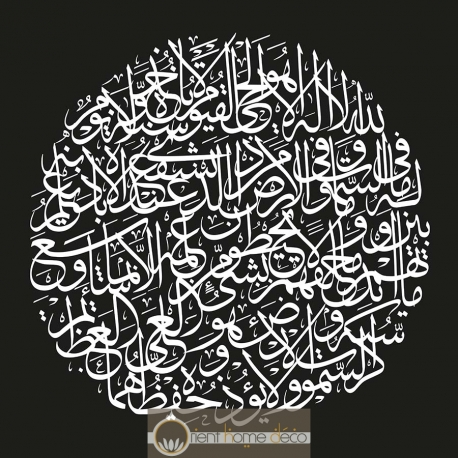 الله لا اله الا هو الحي القيوم لا تاخذه سنة ولا نوم
له ما في السموات وما في الارض من ذا الذي يشفع عنده الا باذنه يعلم
ما بين ايديهم وما خلفهم ولا يحيطون بشيء من علمه الا بما شاء وسع
كرسيه السموات والارض ولا يؤده حفظهما وهو العلي العظيم
Orient home déco